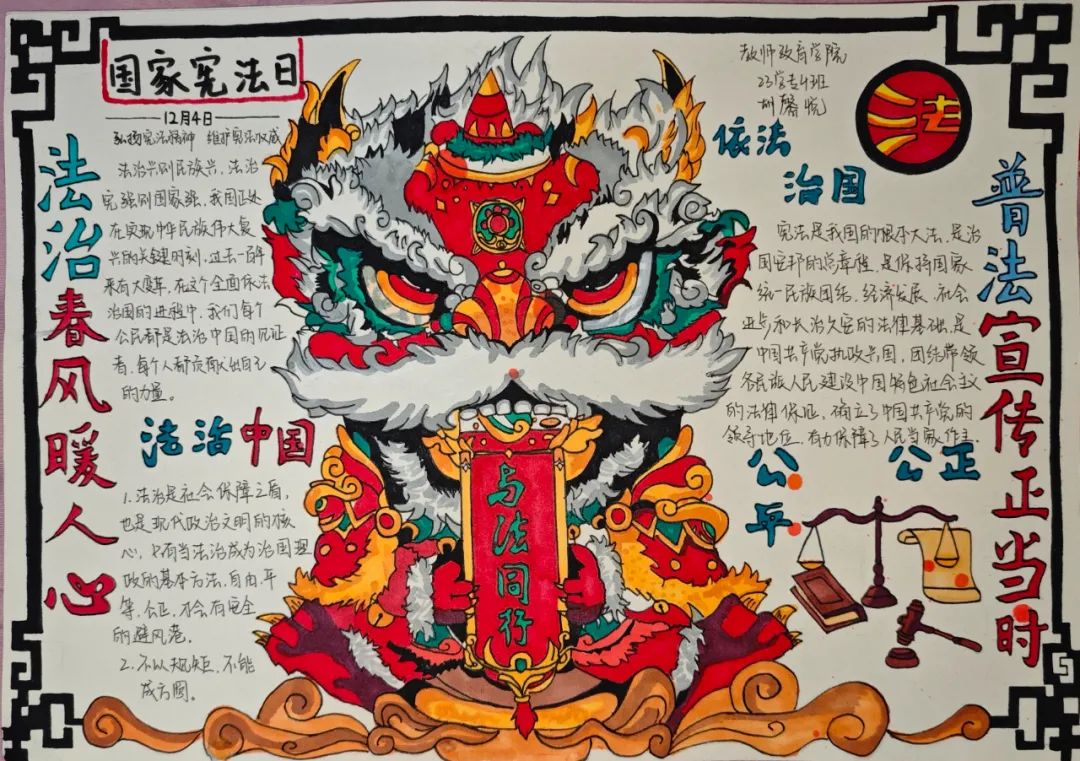 国家宪法日
12月4日
弘扬宪法精神 维护宪法权威
法治兴则民族兴,法治
强则国家强,我国正处
在实现中华民族伟大复
兴的关键时刻,过去一百年
来有大变革,在这个全面依法
治国的进程中,我们每个
公民都是法治中国的见证
者,每个人都贡献出自己
的力量。
法治中国
1.法治是社会保障之盾,
也是现代政治文明的核
心,只有当法治成为治国理
政的基本方法,自由,平
等,公正,才会有安全
的避风港。
2.不以规矩,不能
成方圆。
法治春风暖人心
与法同行
教师教育学院
23学专4班
法
依法
治国
宪法是我国的根本大法,是治
国安邦的总章程,是保持国家
统一民族团结,经济发展,社会
进步和长治久安的法律基础,是
中国共产党执政兴国,团结带领
各民族人民建设中国特色社会主义
的法律保证,确立了中国共产党的
领导地位,有力保障了人民当家作主.
公平
公正
普法宣传正当时